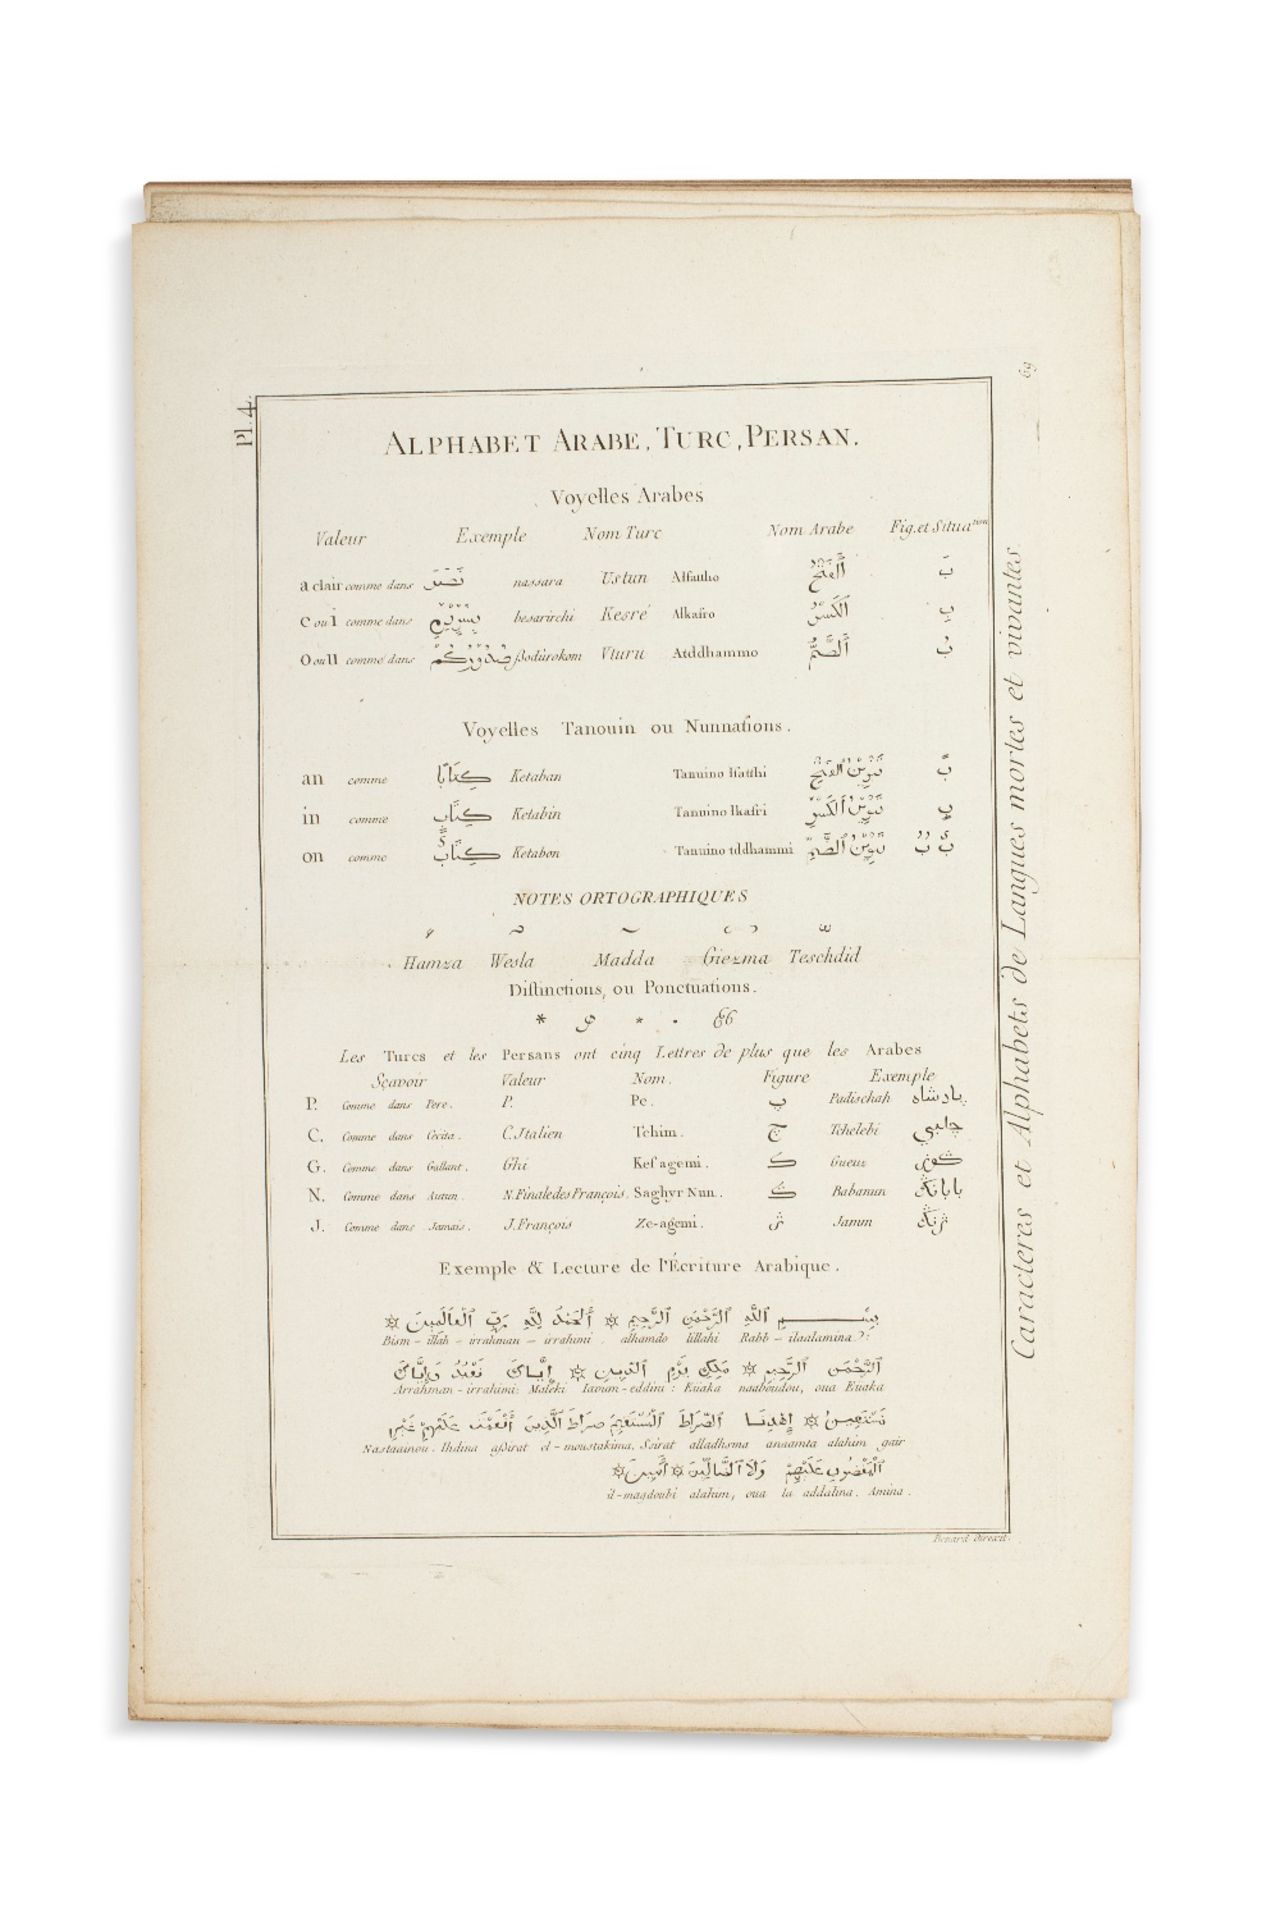 Pl. 4.
69
ALPHABET ARABE, TURC, PERSAN.
Voyelles Arabes
Valeur Exemple Nom Turc Nom Arabe Fig. et Situation
a clair comme dans نَصَرَ nassara Ustun Alfatho اَلْفَتْحُ بَ
e ou i comme dans besarirchi Kesré Alkasro اَلْكَسْرُ بِ
O ou U comme dans صُدُورُكُمْ ßodûrokom Vturu Atddhammo اَلضَّمُّ بُ
Voyelles Tanouin ou Nunnations.
an comme كِتَابًا Ketaban Tanuino lfatthi تَنْوِيْنُ الْفَتْحِ بً
in comme كِتَابٍ Ketabin Tanuino lkasri تَنْوِيْنُ الْكَسْرِ بٍ
on comme كِتَابٌ Ketabon Tanuino tddhammi تَنْوِيْنُ الضَّمِّ بٌ بٌ
NOTES ORTOGRAPHIQUES
Hamza Wesla Madda Giezma Teschdid
Distinctions, ou Ponctuations.
Les Turcs et les Persans ont cinq Lettres de plus que les Arabes
Sçavoir Valeur Nom. Figure Exemple
P. Comme dans Pere. P. Pe. پ Padischah پادشاه
C. Comme dans Cecita. C. Italien Tchim. چ Tchelebi چلبي
G. Comme dans Gallant. Ghi Kef agemi. ك Gueuz
N. Comme dans Autun. N. Finale des François. Saghyr Nun. ڭ Babanun باباڭك
J. Comme dans Jamais. J. François Ze-agemi. ژ Jamm
Exemple & Lecture de l'Écriture Arabique.
بِسْمِ اللّٰهِ الرَّحْمٰنِ الرَّحِيمِ ✡ اَلْحَمْدُ لِلّٰهِ رَبِّ الْعَالَمِينَ ✡
Bism - illah - irrahman - irrahimi . alhamdo lillahi Rabb - ilaalamina :
الرَّحْمٰنِ الرَّحِيمِ ✡ مَلِكِ يَوْمِ الدِّينِ ✡ إِيَّاكَ نَعْبُدُ وَإِيَّاكَ
Arrahman - irrahimi: Maleki Iaoum - eddini : Eiiaka naaboudou, oua Eiiaka
نَسْتَعِينُ ✡ إِهْدِنَا الصِّرَاطَ الْمُسْتَقِيمَ صِرَاطَ الَّذِينَ أَنْعَمْتَ عَلَيْهِمْ غَيْرِ
Nastaainou . Ihdina aßirat el - moustakima, Ssirat alladhsma anaamta alahim gair
الْمَغْضُوبِ عَلَيْهِمْ وَلَا الضَّالِّينَ ✡ آمِينَ ✡
il - magdoubi alahim, oua la addalina. Amina.
Benard Direxit.
Caracteres et Alphabets de Langues mortes et vivantes